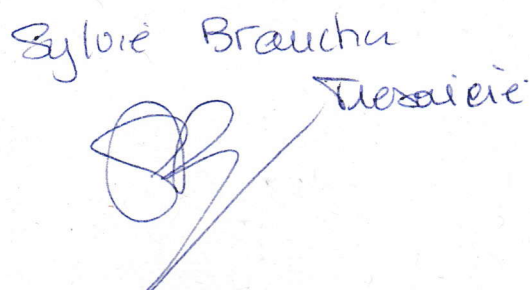 Sylvie Brauchu
Tresoriere